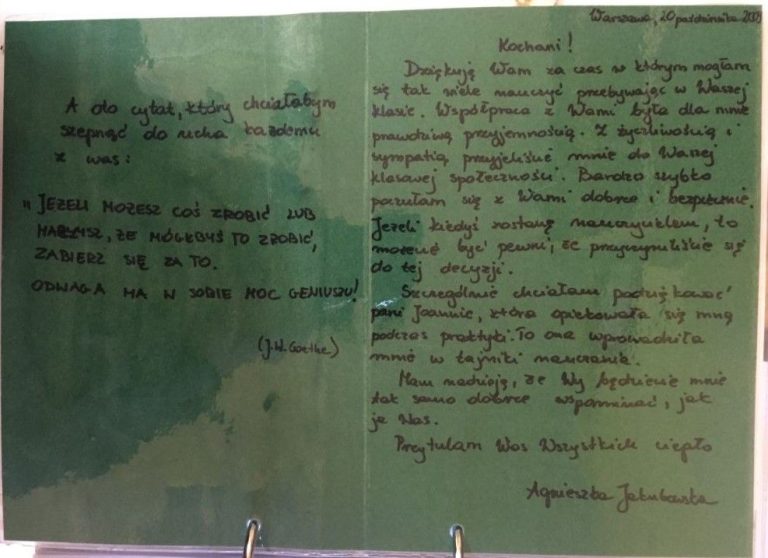 A oto cytat, który chciałabym
szepnąć do ucha każdemu
z was:
"JEŻELI MOŻESZ COŚ ZROBIĆ LUB
MARZYSZ, ŻE MÓGŁBYŚ TO ZROBIĆ,
ZABIERZ SIĘ ZA TO.
ODWAGA MA W SOBIE MOC GENIUSZU!
(J.W. Goethe)
Warszawa, 20 października 2009
Kochani!
Dziękuję Wam za czas w którym mogłam
się tak wiele nauczyć przebywając w Waszej
klasie. Współpraca z Wami była dla mnie
prawdziwą przyjemnością. Z życzliwością i
sympatią przyjęliście mnie do Waszej
klasowej społeczności. Bardzo szybko
poczułam się z Wami dobrze i bezpiecznie.
Jeżeli kiedyś zostanę nauczycielem, to
możecie być pewni, że przyczyniliście się
do tej decyzji.
Szczególnie chciałam podziękować
pani Joannie, która opiekowała się mną
podczas praktyki. To ona wprowadziła
mnie w tajniki nauczania.
Mam nadzieję, że Wy będziecie mnie
tak samo dobrze wspominać, jak
ja Was.
Przytulam Was Wszystkich ciepło
Agnieszka Jakubowska